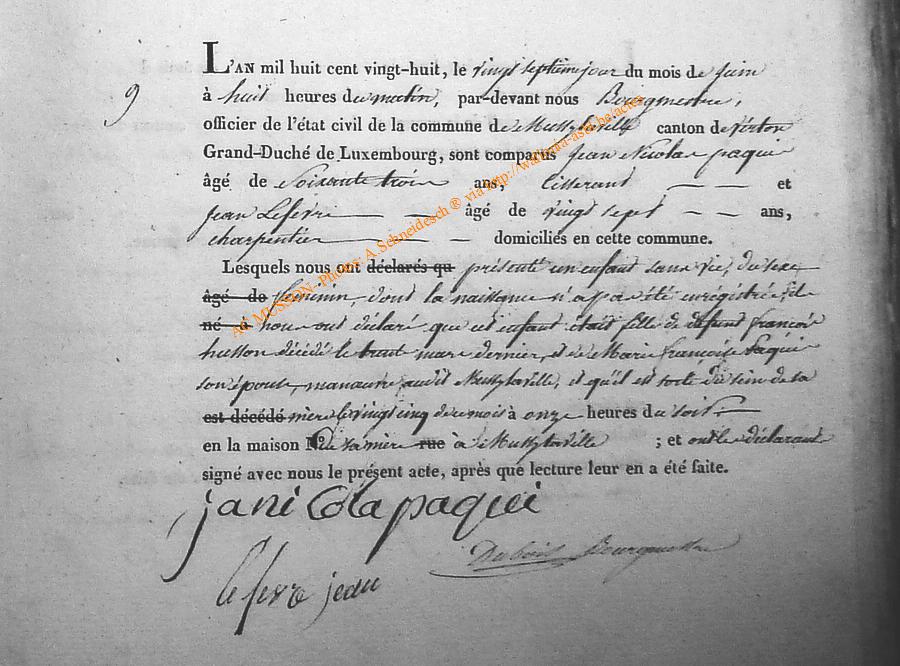 L'AN mil huit cent vingt-huit, le vingt septieme jour du mois de juin
9
à huit heures du matin, par-devant nous Bourgmestre,
officier de l'état civil de la commune de Mussylaville canton de Virton
Grand-Duché de Luxembourg, sont comparus Jean Nicolas paquis
âgé de Soixante trois ans, tisserand et
Jean Lefevre âgé de vingt sept ans,
charpentier domiciliés en cette commune.
Lesquels nous ont déclarés qu présenté un enfant sans vie, du sexe
âgé de feminin, dont la naissance n'a pas été enrégistrée, ils
né à nous ont déclaré que cet enfant était fille de defunt françois
husson décédé le trente mars dernier, et de Marie françoise Paquis
son épouse, manœuvre audit Mussylaville, et qu'il est sorti du sein de sa
est décédé mere le vingt cinq de ce mois à onze heures du soir
en la maison N.º de sa mère rue à Mussylaville ; et ont les déclarants
signé avec nous le présent acte, après que lecture leur en a été faite.
jani Cola paquei
Dubois Bourgmestre
lefevre jean
AC MUSSON - Photos: A. Schneidesch ® via http://wallonia-asbl.be/actes